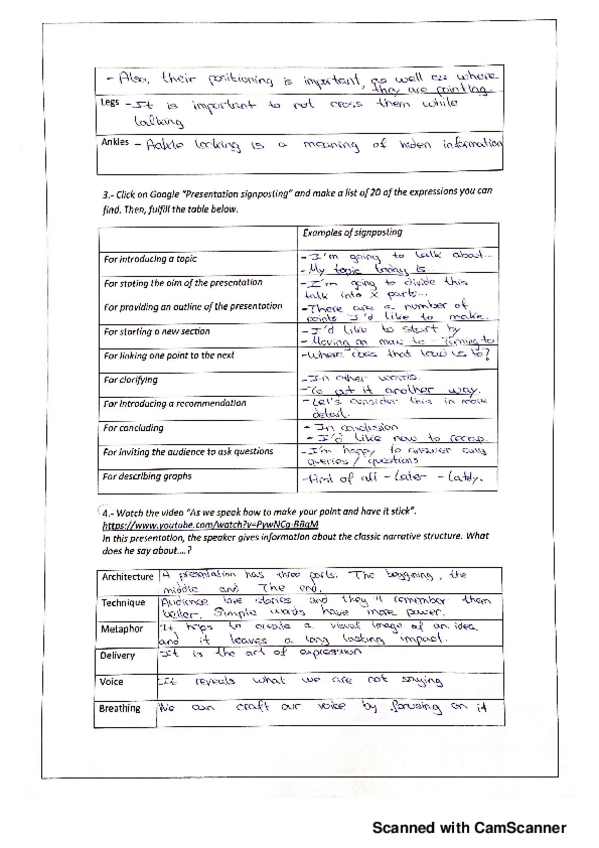 - Also, their positioning is important, as well as where
they are pointing
Legs - It is important to not cross them while
talking
Ankles - Ankle locking is a meaning of hiden information
3.- Click on Google "Presentation signposting" and make a list of 20 of the expressions you can
find. Then, fulfill the table below.
Examples of signposting
For introducing a topic - I'm going to talk about...
- My topic today is...
For stating the aim of the presentation - I'm going to divide this
talk into X parts...
For providing an outline of the presentation - There are a number of
points I'd like to make.
For starting a new section - I'd like to start by
- Moving on now to - Turning to
For linking one point to the next - Where does that lead us to?
For clarifying - In other words.
- To put it another way.
For introducing a recommendation - Let's consider this in more
detail.
For concluding - In conclusion
- I'd like now to recap.
For inviting the audience to ask questions - I'm happy to answer any
queries / questions
For describing graphs - First of all - Later - Lately.
4.- Watch the video "As we speak how to make your point and have it stick".
https://www.youtube.com/watch?v=PywNCg-BBqM
In this presentation, the speaker gives information about the classic narrative structure. What
does he say about....?
Architecture A presentation has three parts. The beggining, the
middle and The end.
Technique Audience love stories and they'll remember them
better. Simple words have more power.
Metaphor It helps to create a visual image of an idea.
and it leaves a long lasting impact.
Delivery It is the art of expression
Voice It reveals what we are not saying
Breathing We can craft our voice by focusing on it
Scanned with CamScanner